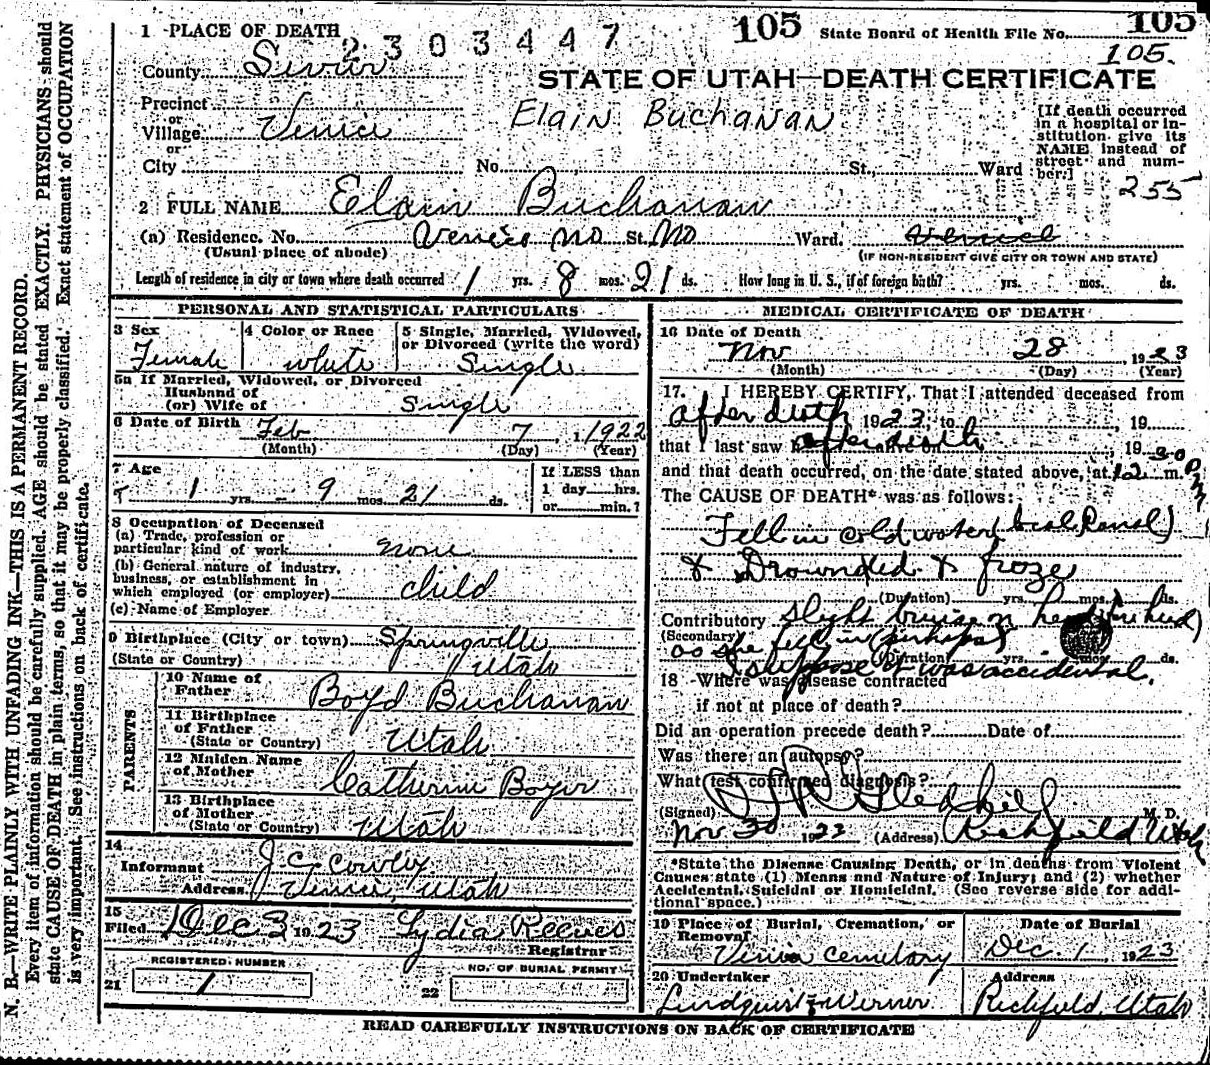 1 PLACE OF DEATH
2303447
105
State Board of Health File No. 105
105.
County Sevier
STATE OF UTAH—DEATH CERTIFICATE
Precinct
or
Village Venice
or
Elain Buchanan
[If death occurred
in a hospital or in-
stitution give its
NAME instead of
street and num-
ber.]
City No. St., Ward
255
2 FULL NAME Elain Buchanan
(a) Residence. No. Venice No St. No Ward. Venice
(Usual place of abode)
(IF NON-RESIDENT GIVE CITY OR TOWN AND STATE)
Length of residence in city or town where death occurred 1 yrs. 8 mos. 21 ds. How long in U. S., if of foreign birth? yrs. mos. ds.
PERSONAL AND STATISTICAL PARTICULARS
3 Sex
Female
4 Color or Race
white
5 Single, Married, Widowed,
or Divorced (write the word)
Single
5a If Married, Widowed, or Divorced
Husband of
(or) Wife of Single
6 Date of Birth Feb 7, 1922
(Month) (Day) (Year)
7 Age
1 yrs. 9 mos. 21 ds.
If LESS than
1 day hrs.
or min.?
8 Occupation of Deceased
(a) Trade, profession or
particular kind of work none
(b) General nature of industry,
business, or establishment in
which employed (or employer) child
(c) Name of Employer
9 Birthplace (City or town) Springville
(State or Country) Utah
PARENTS
10 Name of
Father Boyd Buchanan
11 Birthplace
of Father
(State or Country) Utah
12 Maiden Name
of Mother Catherine Boyer
13 Birthplace
of Mother
(State or Country) Utah
14
Informant J. C. Cowley
Address Venice, Utah
15
Filed Dec 3 1923 Lydia Reeves
Registrar
REGISTERED NUMBER
21 1
NO. OF BURIAL PERMIT
22
MEDICAL CERTIFICATE OF DEATH
16 Date of Death
Nov 28 1923
(Month) (Day) (Year)
17. I HEREBY CERTIFY, That I attended deceased from
After death 1923, to , 19
that I last saw h after death alive on , 1930
and that death occurred, on the date stated above, at 12 m. Pm
The CAUSE OF DEATH* was as follows:
Fell in cold water (local Canal)
& Drounded & froze
(Duration) yrs. mos. ds.
Contributory slight bruise on head (forehead)
(Secondary) as she fell in (perhaps)
(Duration) yrs. mos. ds.
I suppose it was accidental.
18 Where was disease contracted
if not at place of death?
Did an operation precede death? Date of
Was there an autopsy?
What test confirmed diagnosis?
(Signed) Gledhill M. D.
Nov 30 1922 (Address) Richfield Utah
*State the Disease Causing Death, or in deaths from Violent
Causes state (1) Means and Nature of Injury; and (2) whether
Accidental, Suicidal or Homicidal. (See reverse side for addi-
tional space.)
19 Place of Burial, Cremation, or
Removal
Venice cemetary
Date of Burial
Dec 1 1923
20 Undertaker
Lindquist & Werner
Address
Richfield, Utah
READ CAREFULLY INSTRUCTIONS ON BACK OF CERTIFICATE
N. B.—WRITE PLAINLY WITH UNFADING INK—THIS IS A PERMANENT RECORD.
Every item of information should be carefully supplied. AGE should be stated EXACTLY. PHYSICIANS should
state CAUSE OF DEATH in plain terms, so that it may be properly classified. Exact statement of OCCUPATION
is very important. See instructions on back of certificate.